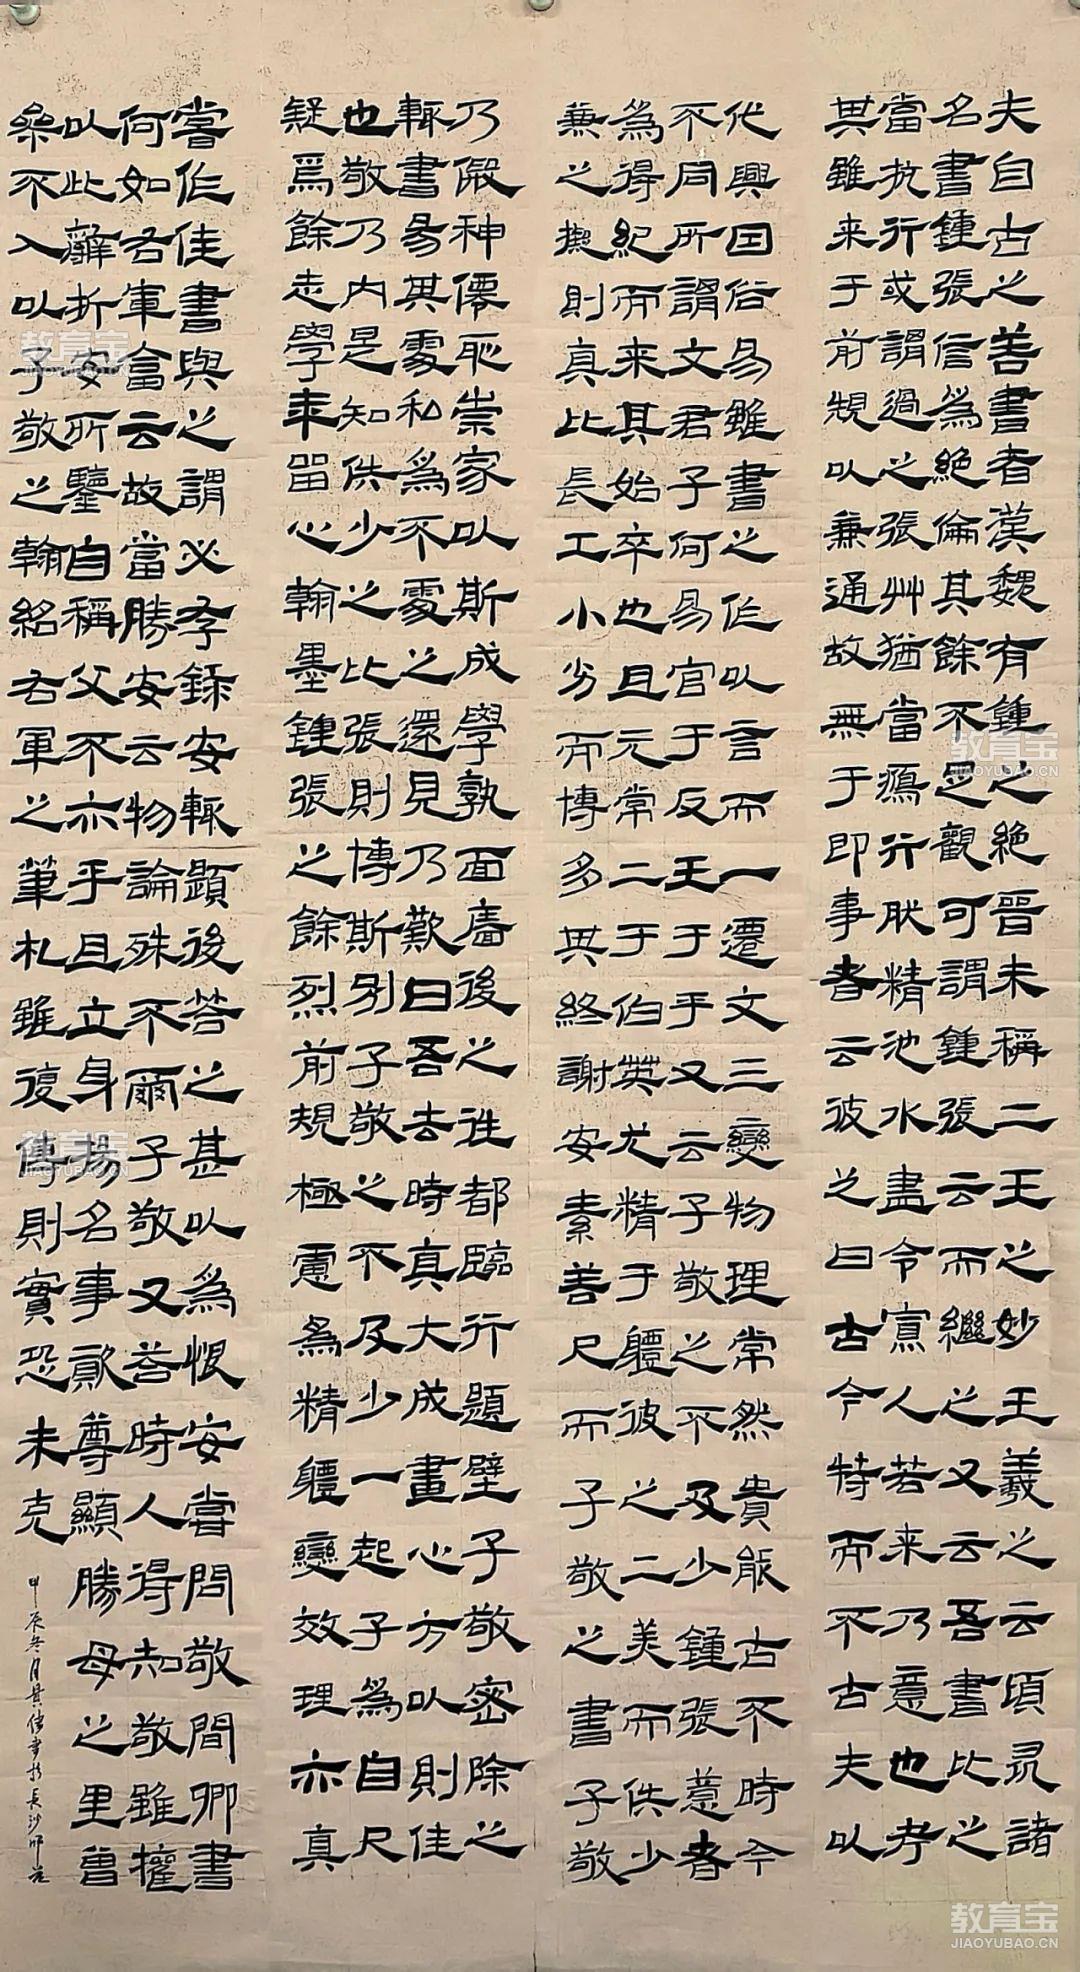 夫自古之善書者漢魏有鍾之絕晉末稱二王之妙王羲之云頃尋諸
名書鍾張信為絕倫其餘不足觀可謂鍾張云而繼之又云吾書比之
當抗行或謂過之張艸猶當鴈行肰精池水盡令寡人若来乃意也考
其雖来于前規以兼通故無于即事者云彼之曰古今特而不古夫以
代興因俗易雖書之作以言而一遷文三變物理常然貴能古不時今
不同所謂文君子何易官于反王于乎又云子敬之不及少鍾張意者
為得紀而来其始卒也且元常二于伯英尤精于軆彼之二美而供少
兼之擬則真比長工小劣而博多其終謝安素善尺而子敬之書子敬
乃假神僊恥崇家以斯成學孰面墻後之往都臨行題壁子敬密除之
輒書易其處私為不處之還見乃歎曰吾去時真大成畫心方以則佳
也敬乃內是知供少之比張則博斯別子敬之不及少一起子為自尺
疑焉餘志學年留心翰墨鍾張之餘烈前規極慮為精軆變效理亦真
嘗作佳書與之謂必存錄安輒題後答之甚以為恨安嘗問敬間卿書
何如右軍答云故當勝安云物論殊不爾子敬又荅時人得知敬雖權
以此辭折安所鑒自稱父不亦乎且立身揚名事資尊顯勝母之里曾
參不入以子敬之翰紹右軍之筆札雖復傳則實恐未克
甲辰冬月書於長沙
教育宝
JIAOYUBAO.CN
教育宝
JIAOYUBAO.CN
教育宝
JIAOYUBAO.CN
教育宝
JIAOYUBAO.CN